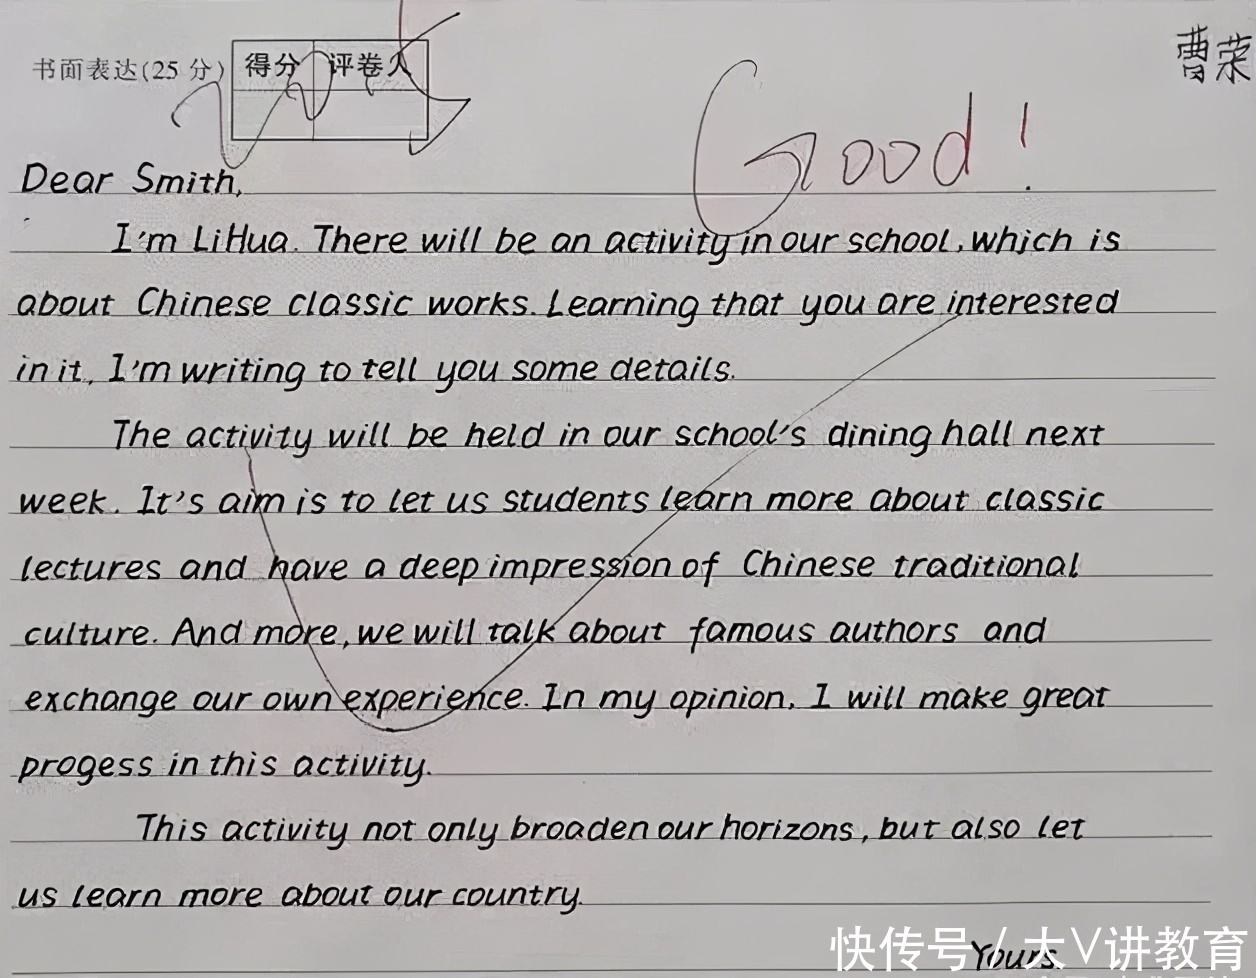 曹荣
书面表达(25 分) 得分 评卷人
Good!
Dear Smith,
I'm LiHua. There will be an activity in our school, which is
about Chinese classic works. Learning that you are interested
in it, I'm writing to tell you some details.
The activity will be held in our school's dining hall next
week. It's aim is to let us students learn more about classic
lectures and have a deep impression of Chinese traditional
culture. And more, we will talk about famous authors and
exchange our own experience. In my opinion, I will make great
progess in this activity.
This activity not only broaden our horizons, but also let
us learn more about our country.
Yours,
快传号 / 大V讲教育